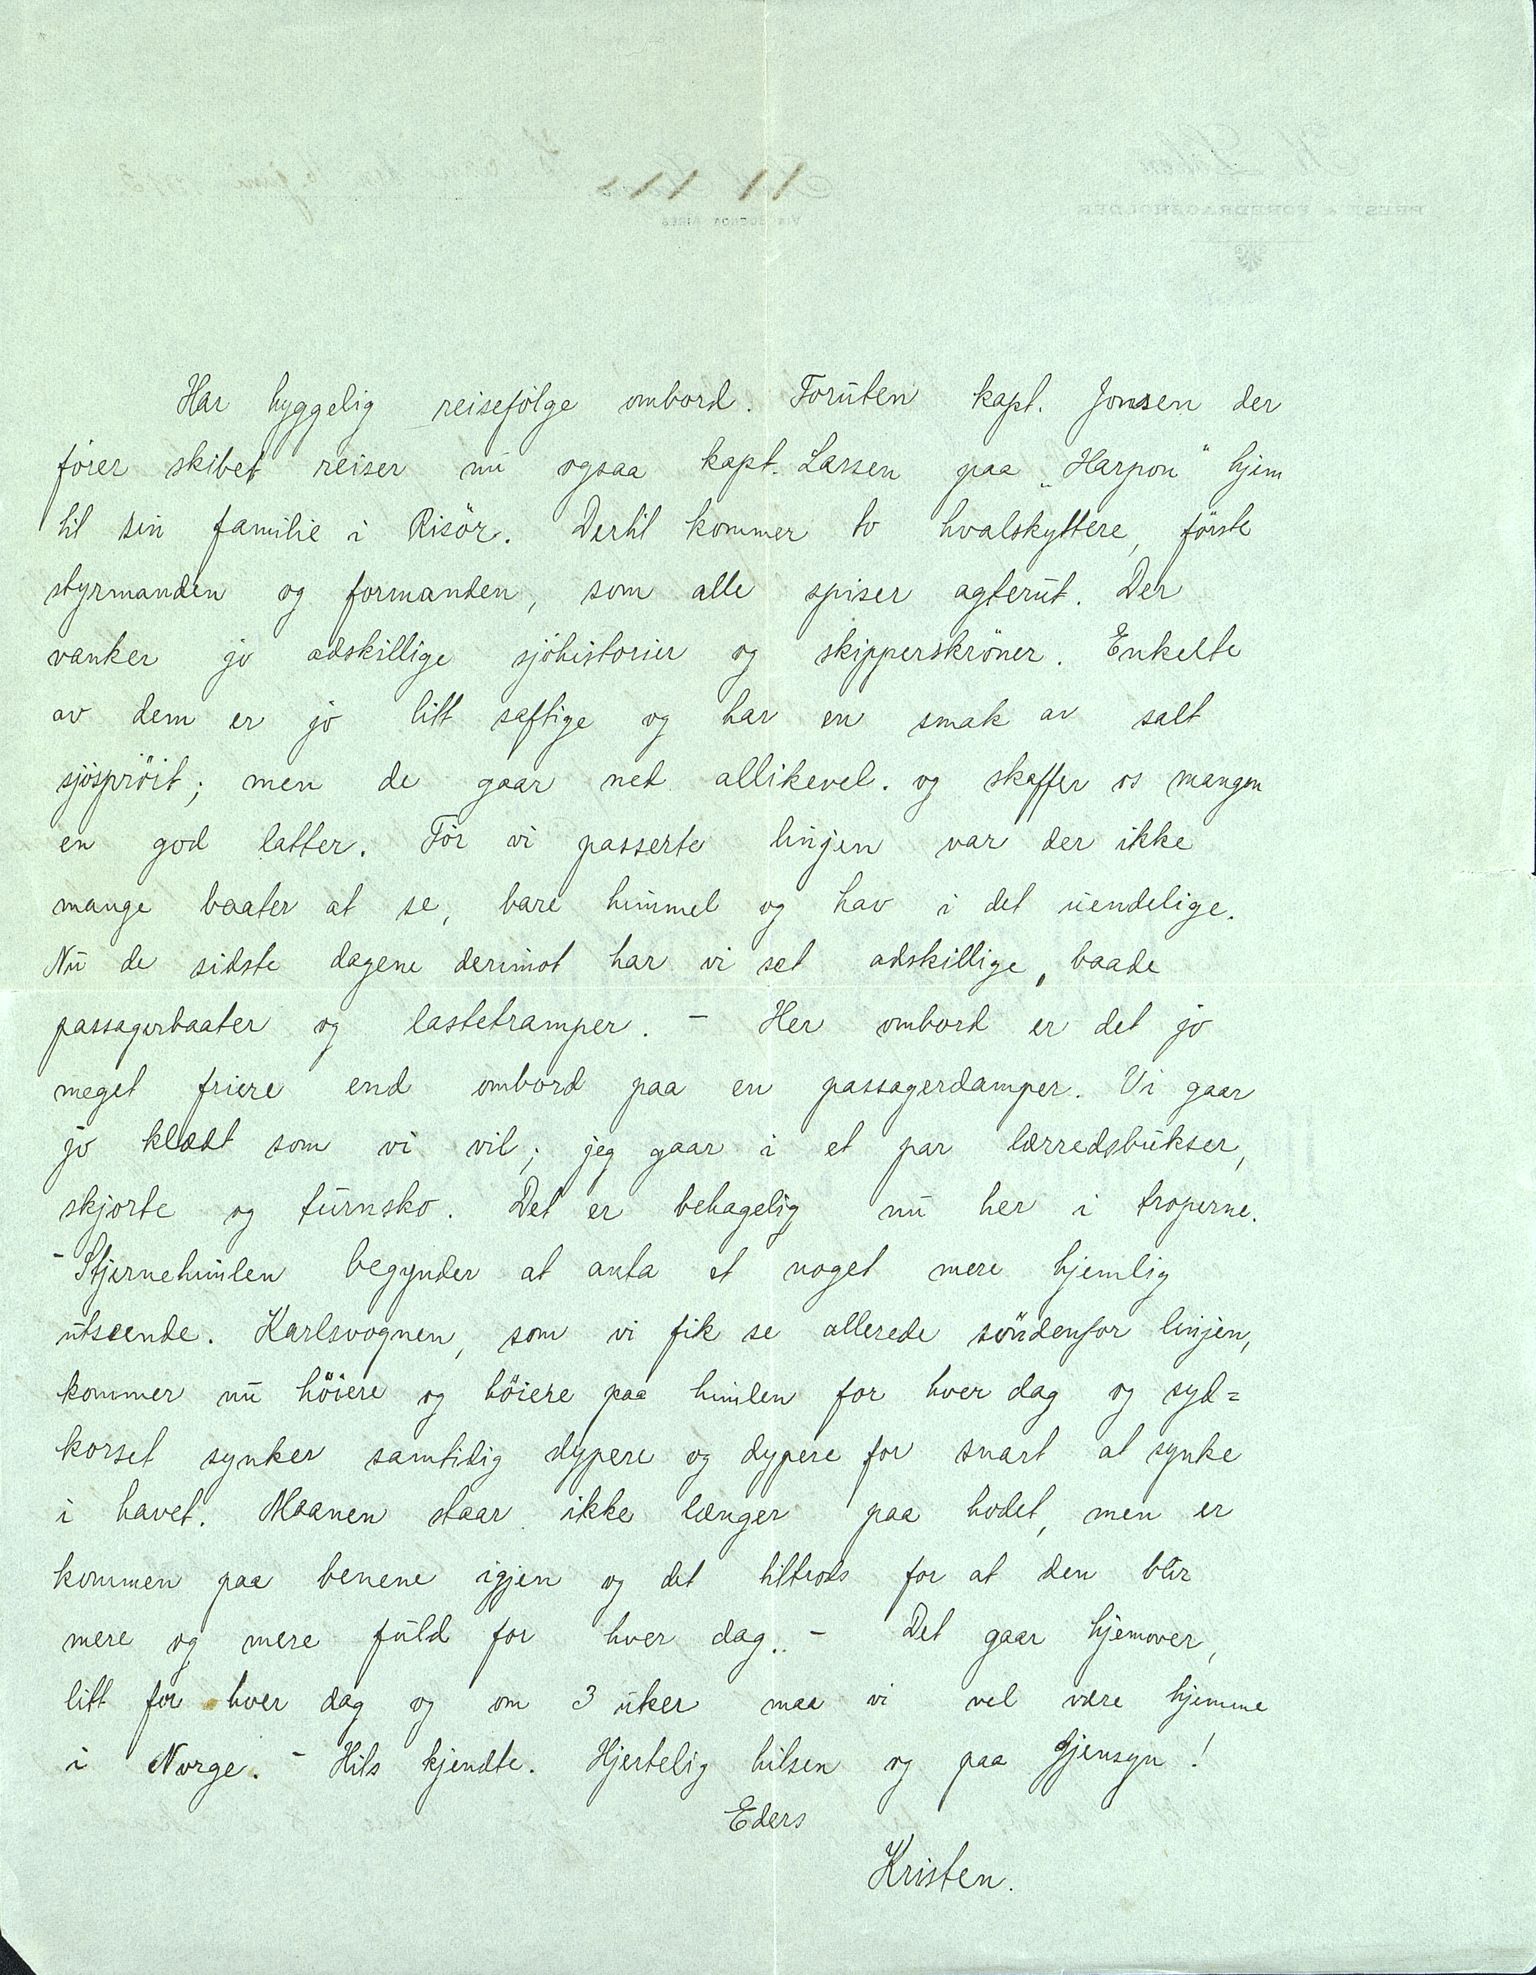 Har hyggelig reisefölge ombord. Foruten kapt. Jonsen der
förer skibet reiser nu ogsaa kapt. Larsen paa „Harpon" hjem
til sin familie i Risör. Dertil kommer to hvalskyttere, förste
styrmanden og formanden, som alle spiser agterut. Der
vanker jo adskillige sjöhistorier og skipperskröner. Enkelte
av dem er jo litt saftige og har en smak av salt
sjöspröit; men de gaar ned allikevel. og skaffer os mangen
en god latter. För vi passerte linjen var der ikke
mange baater at se, bare himmel og hav i det uendelige.
Nu de sidste dagene derimot har vi set adskillige, baade
passagerbaater og lastetramper. - Her ombord er det jo
meget friere end ombord paa en passagerdamper. Vi gaar
jo klædt som vi vil; jeg gaar i et par lærredsbukser,
skjorte og turnsko. Det er behagelig nu her i troperne.
- Stjernehimlen begynder at anta et noget mere hjemlig
utseende. Karlsvognen, som vi fik se allerede söndenfor linjen,
kommer nu höiere og höiere paa himlen for hver dag og syd=
korset synker samtidig dypere og dypere for snart at synke
i havet. Maanen staar ikke længer paa hodet, men er
kommen paa benene igjen og det tiltrods for at den blir
mere og mere fuld for hver dag. - Det gaar hjemover,
litt for hver dag og om 3 uker maa vi vel være hjemme
i Norge. - Hils kjendte. Hjertelig hilsen og paa gjensyn!
Eders
Kristen.